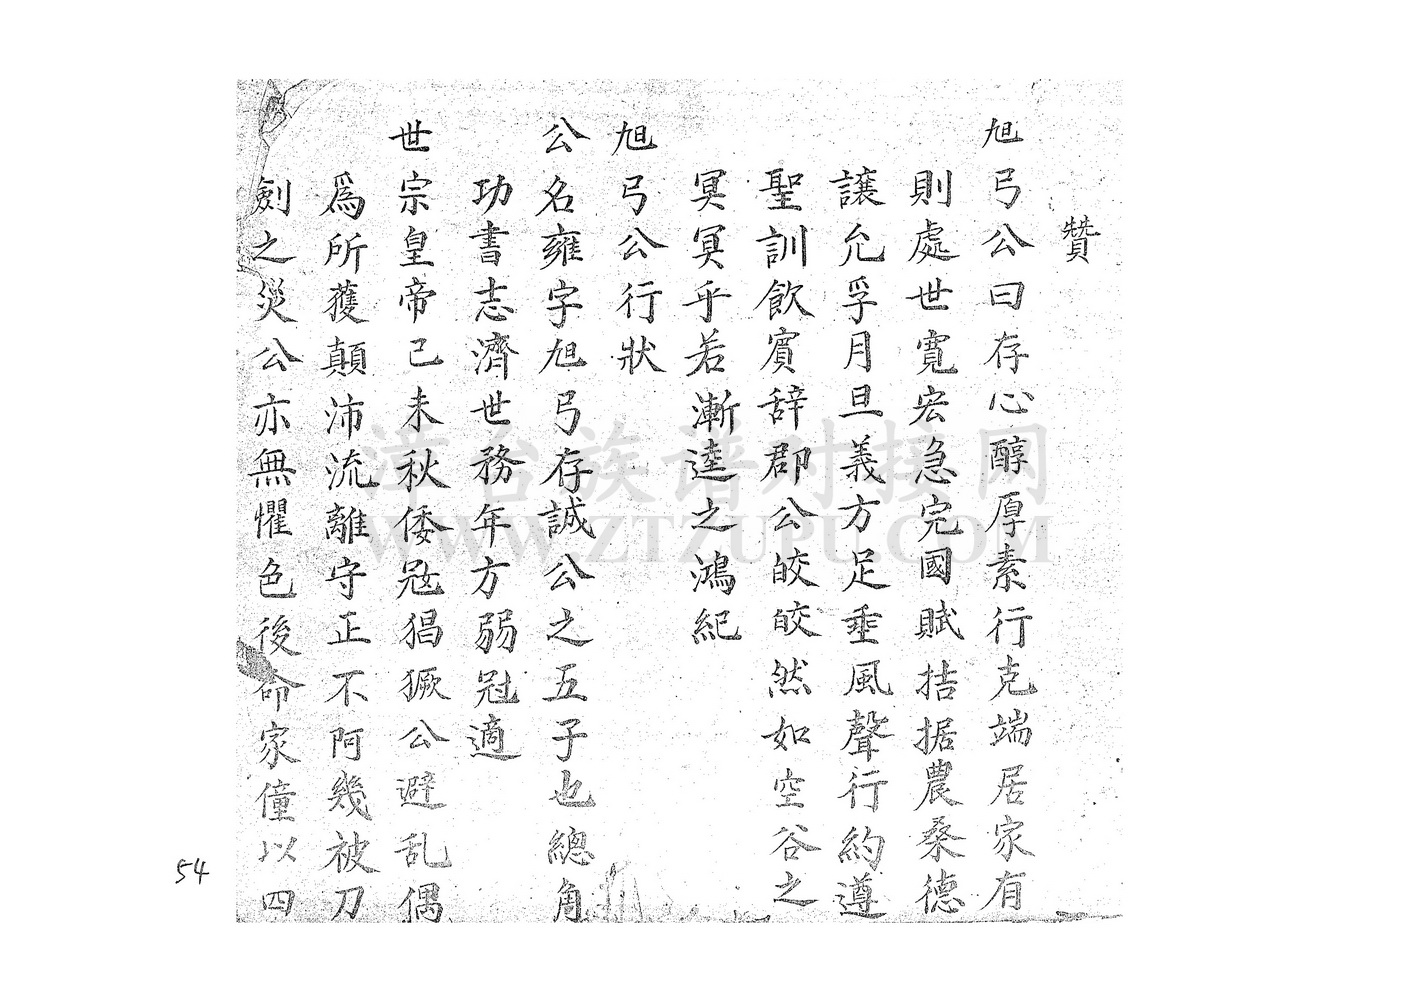 贊
旭弓公曰存心醇厚素行克端居家有
則處世寬宏急完國賦拮据農桑德
讓允孚月旦義方足垂風聲行約遵
聖訓飲賓辞郡公皎皎然如空谷之
冥冥乎若漸逵之鴻紀
旭弓公行狀
公名雍字旭弓存誠公之五子也總角
功書志濟世務年方弱冠適
世宗皇帝己未秋倭寇猖獗公避乱偶
為所獲顛沛流離守正不阿幾被刀
劍之災公亦無懼色後命家僮以四
54
漳台族谱对接网
WWW.ZTZUPU.COM